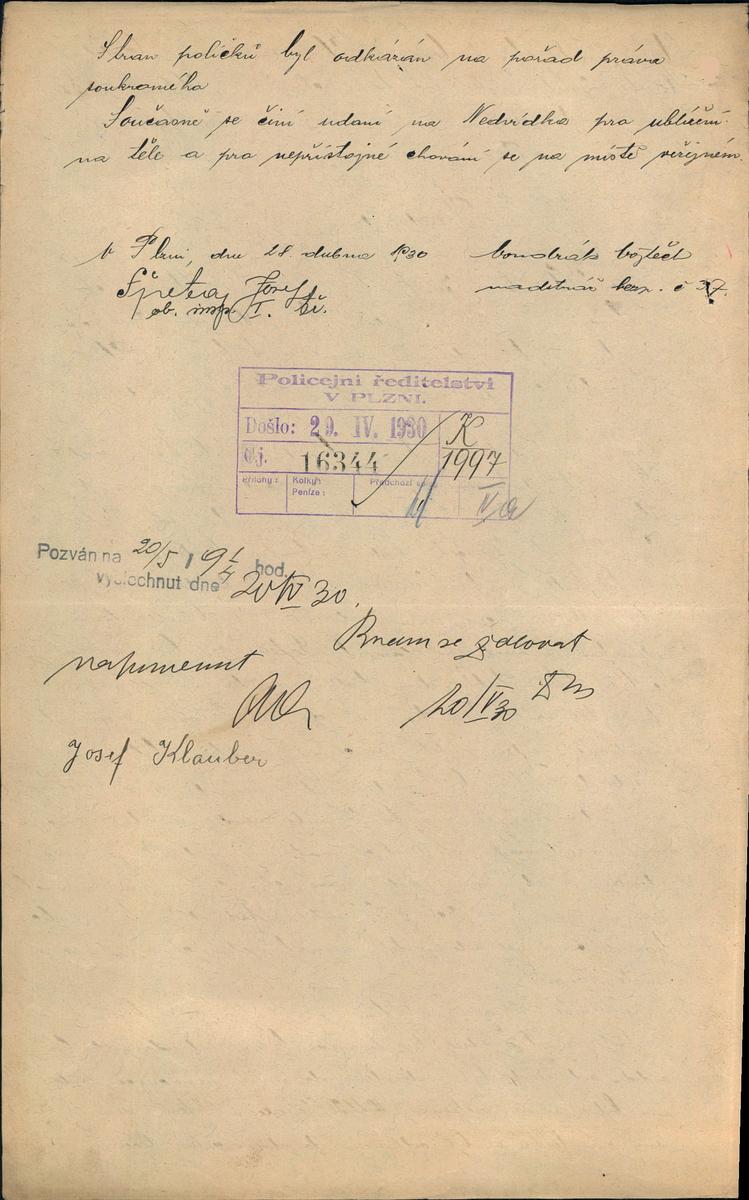 Stran políčků byl odkázán na pořad práva
soukromého
Současně se činí udání na Nedvídka pro ublížení
na těle a pro nepřístojné chování se na místě veřejném.
V Plzni, dne 28. dubna 1930
Josef
ob. insp. I. tř.
nadstráž. bezp. č 37.
Policejní ředitelství
V PLZNI.
Došlo: 29. IV. 1930
K
1997
Čj. 16344
Přílohy:
Kolky:
Peníze:
Předchozí
IVa
Pozván na 20/5 / 9 1/4 hod.
vyslechnut dne 20/V 30.
napomenut
20/V 30
Josef Klauber